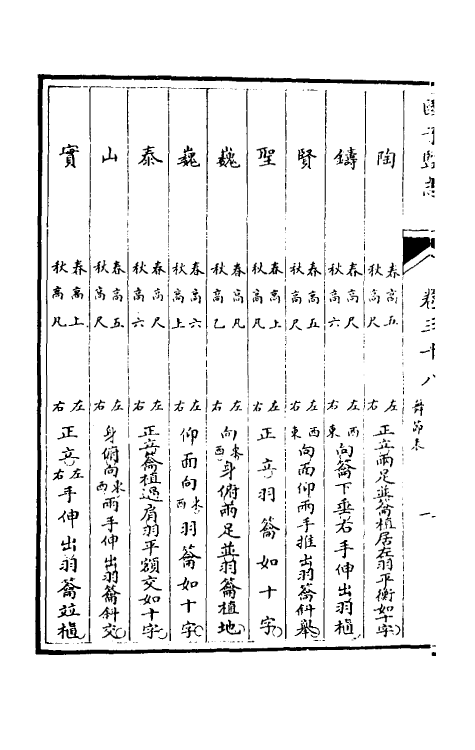 國子監志
卷三十八 舞節表 一
陶 春高五 秋高尺 左右 正立兩足並籥植居左羽平衡如十字
鑄 春高尺 秋高六 左西右東 向籥下垂右手伸出羽植
賢 春高五 秋高尺 左西右東 向面仰兩手推出羽籥斜舉
聖 春高上 秋高凡 左右 正立羽籥如十字
巍 春高凡 秋高乙 左右 向東西身俯兩足並羽籥植地
巍 春高六 秋高上 左右 仰面向東西羽籥如十字
泰 春高尺 秋高六 左右 正立籥植過肩羽平額交如十字
山 春高五 秋高尺 左右 身俯向東西兩手伸出羽籥斜交
實 春高上 秋高凡 左右 正立左右手伸出羽籥並植